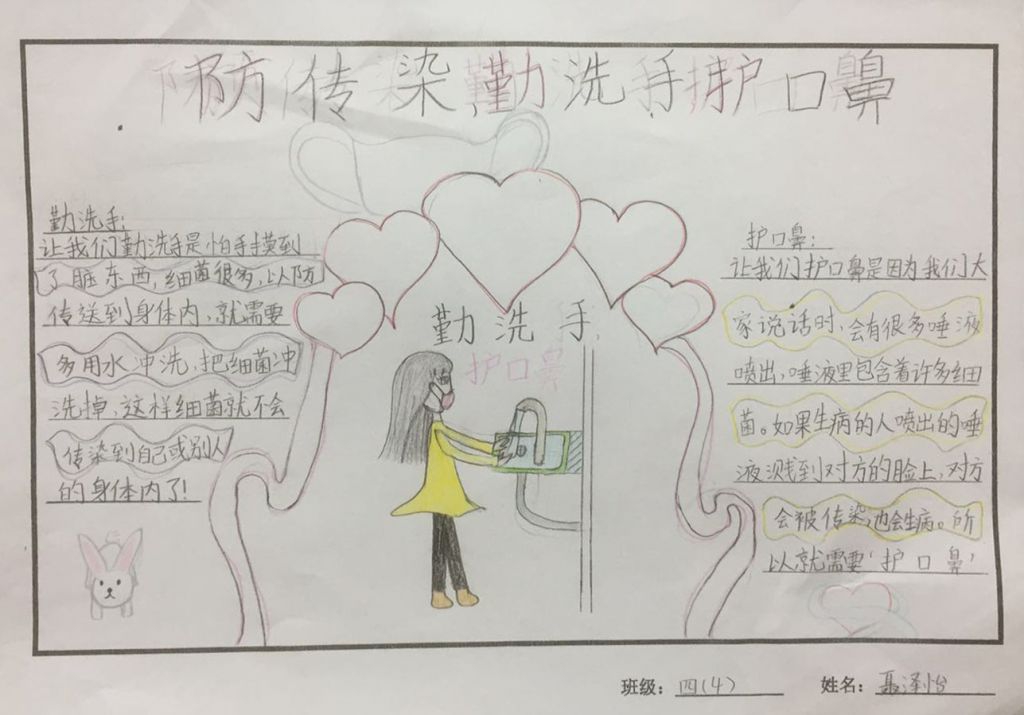 防传染勤洗手护口鼻
勤洗手:
让我们勤洗手是怕手摸到
了脏东西,细菌很多,以防
传送到身体内,就需要
多用水冲洗,把细菌冲
洗掉,这样细菌就不会
传染到自己或别人
的身体内了!
勤洗手
护口鼻
护口鼻:
让我们护口鼻是因为我们大
家说话时,会有很多唾液
喷出,唾液里包含着许多细
菌。如果生病的人喷出的唾
液溅到对方的脸上,对方
会被传染,也会生病。所
以就需要‘护口鼻’
班级: 四(4)
姓名: 聂泽怡